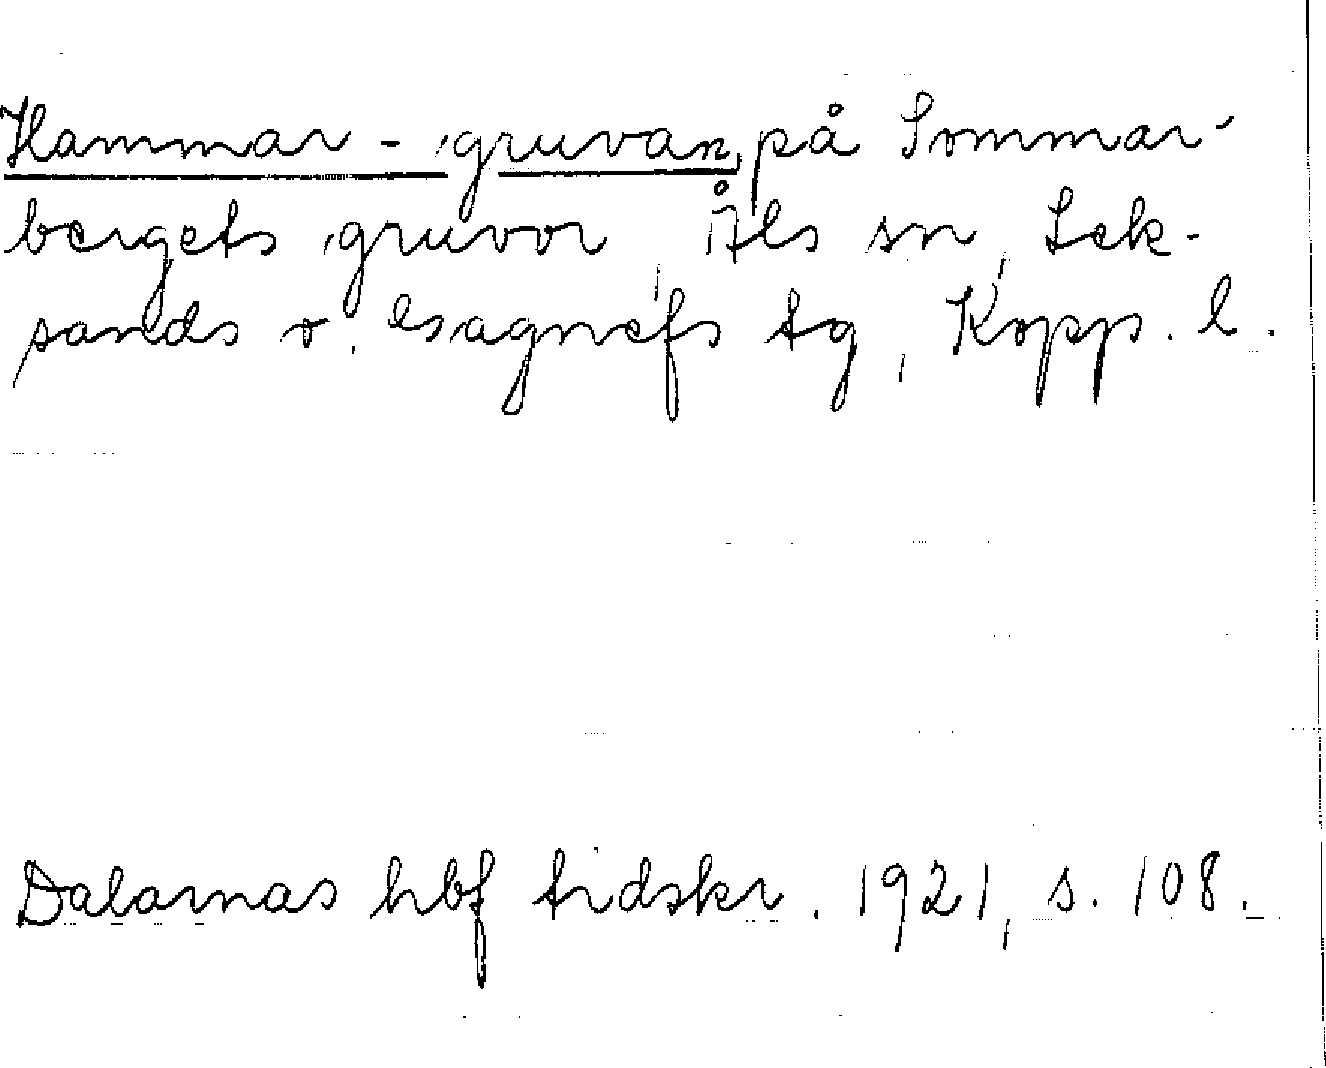 Hammar-gruvan på Sommar-
bergets gruvor, Åls sn, Lek-
sands o. Gagnefs tg, Kopp. l.
Dalarnas hbf tidskr. 1921, s. 108.